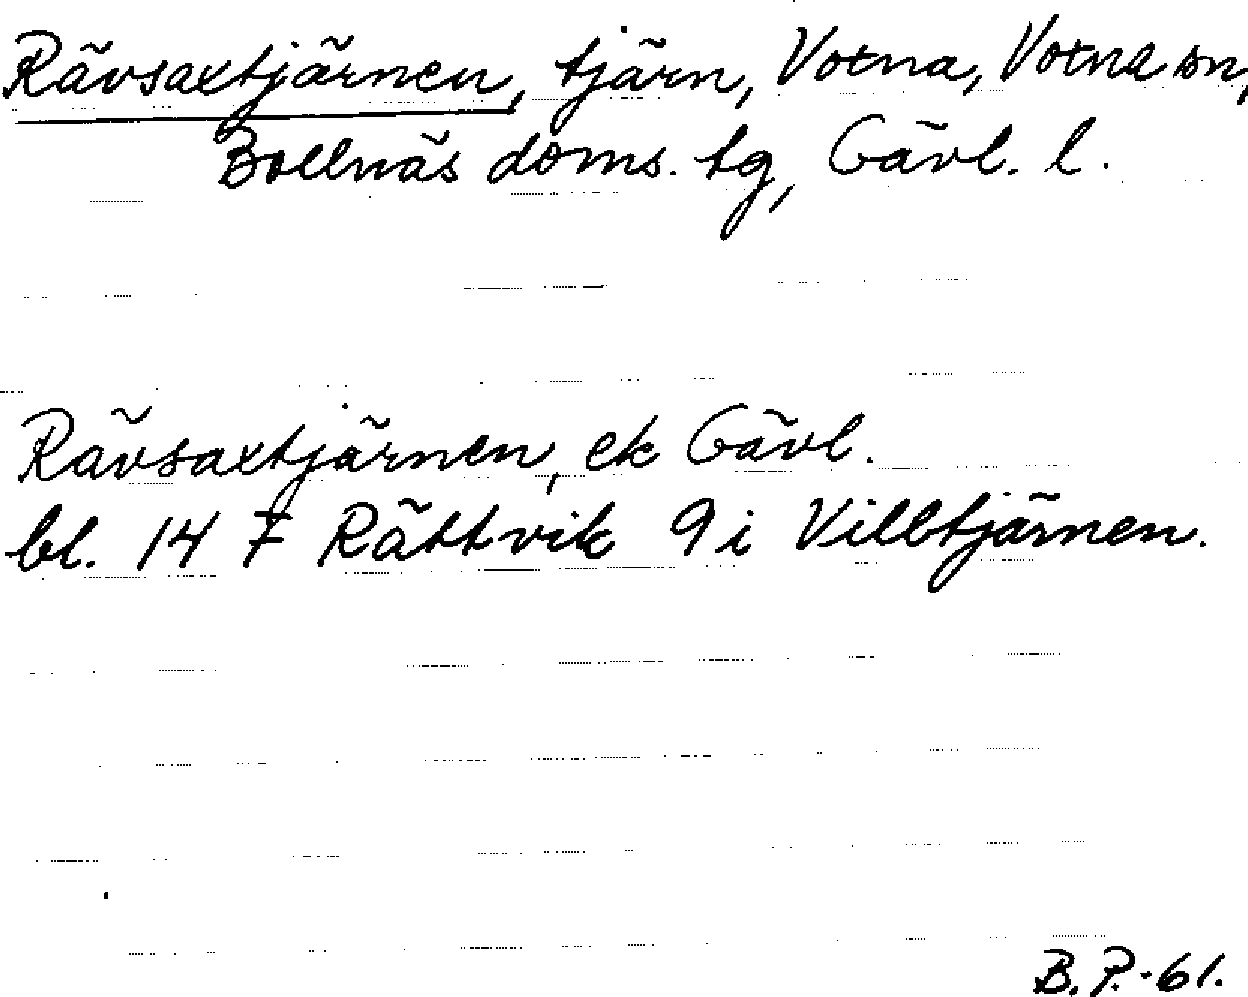 Rävsaxtjärnen, tjärn, Voxna, Voxna sn,
Bollnäs doms. tg, Gävl. l.
Rävsaxtjärnen, ek Gävl.
bl. 14 F Rättvik 9i Villtjärnen.
B.P.-61.